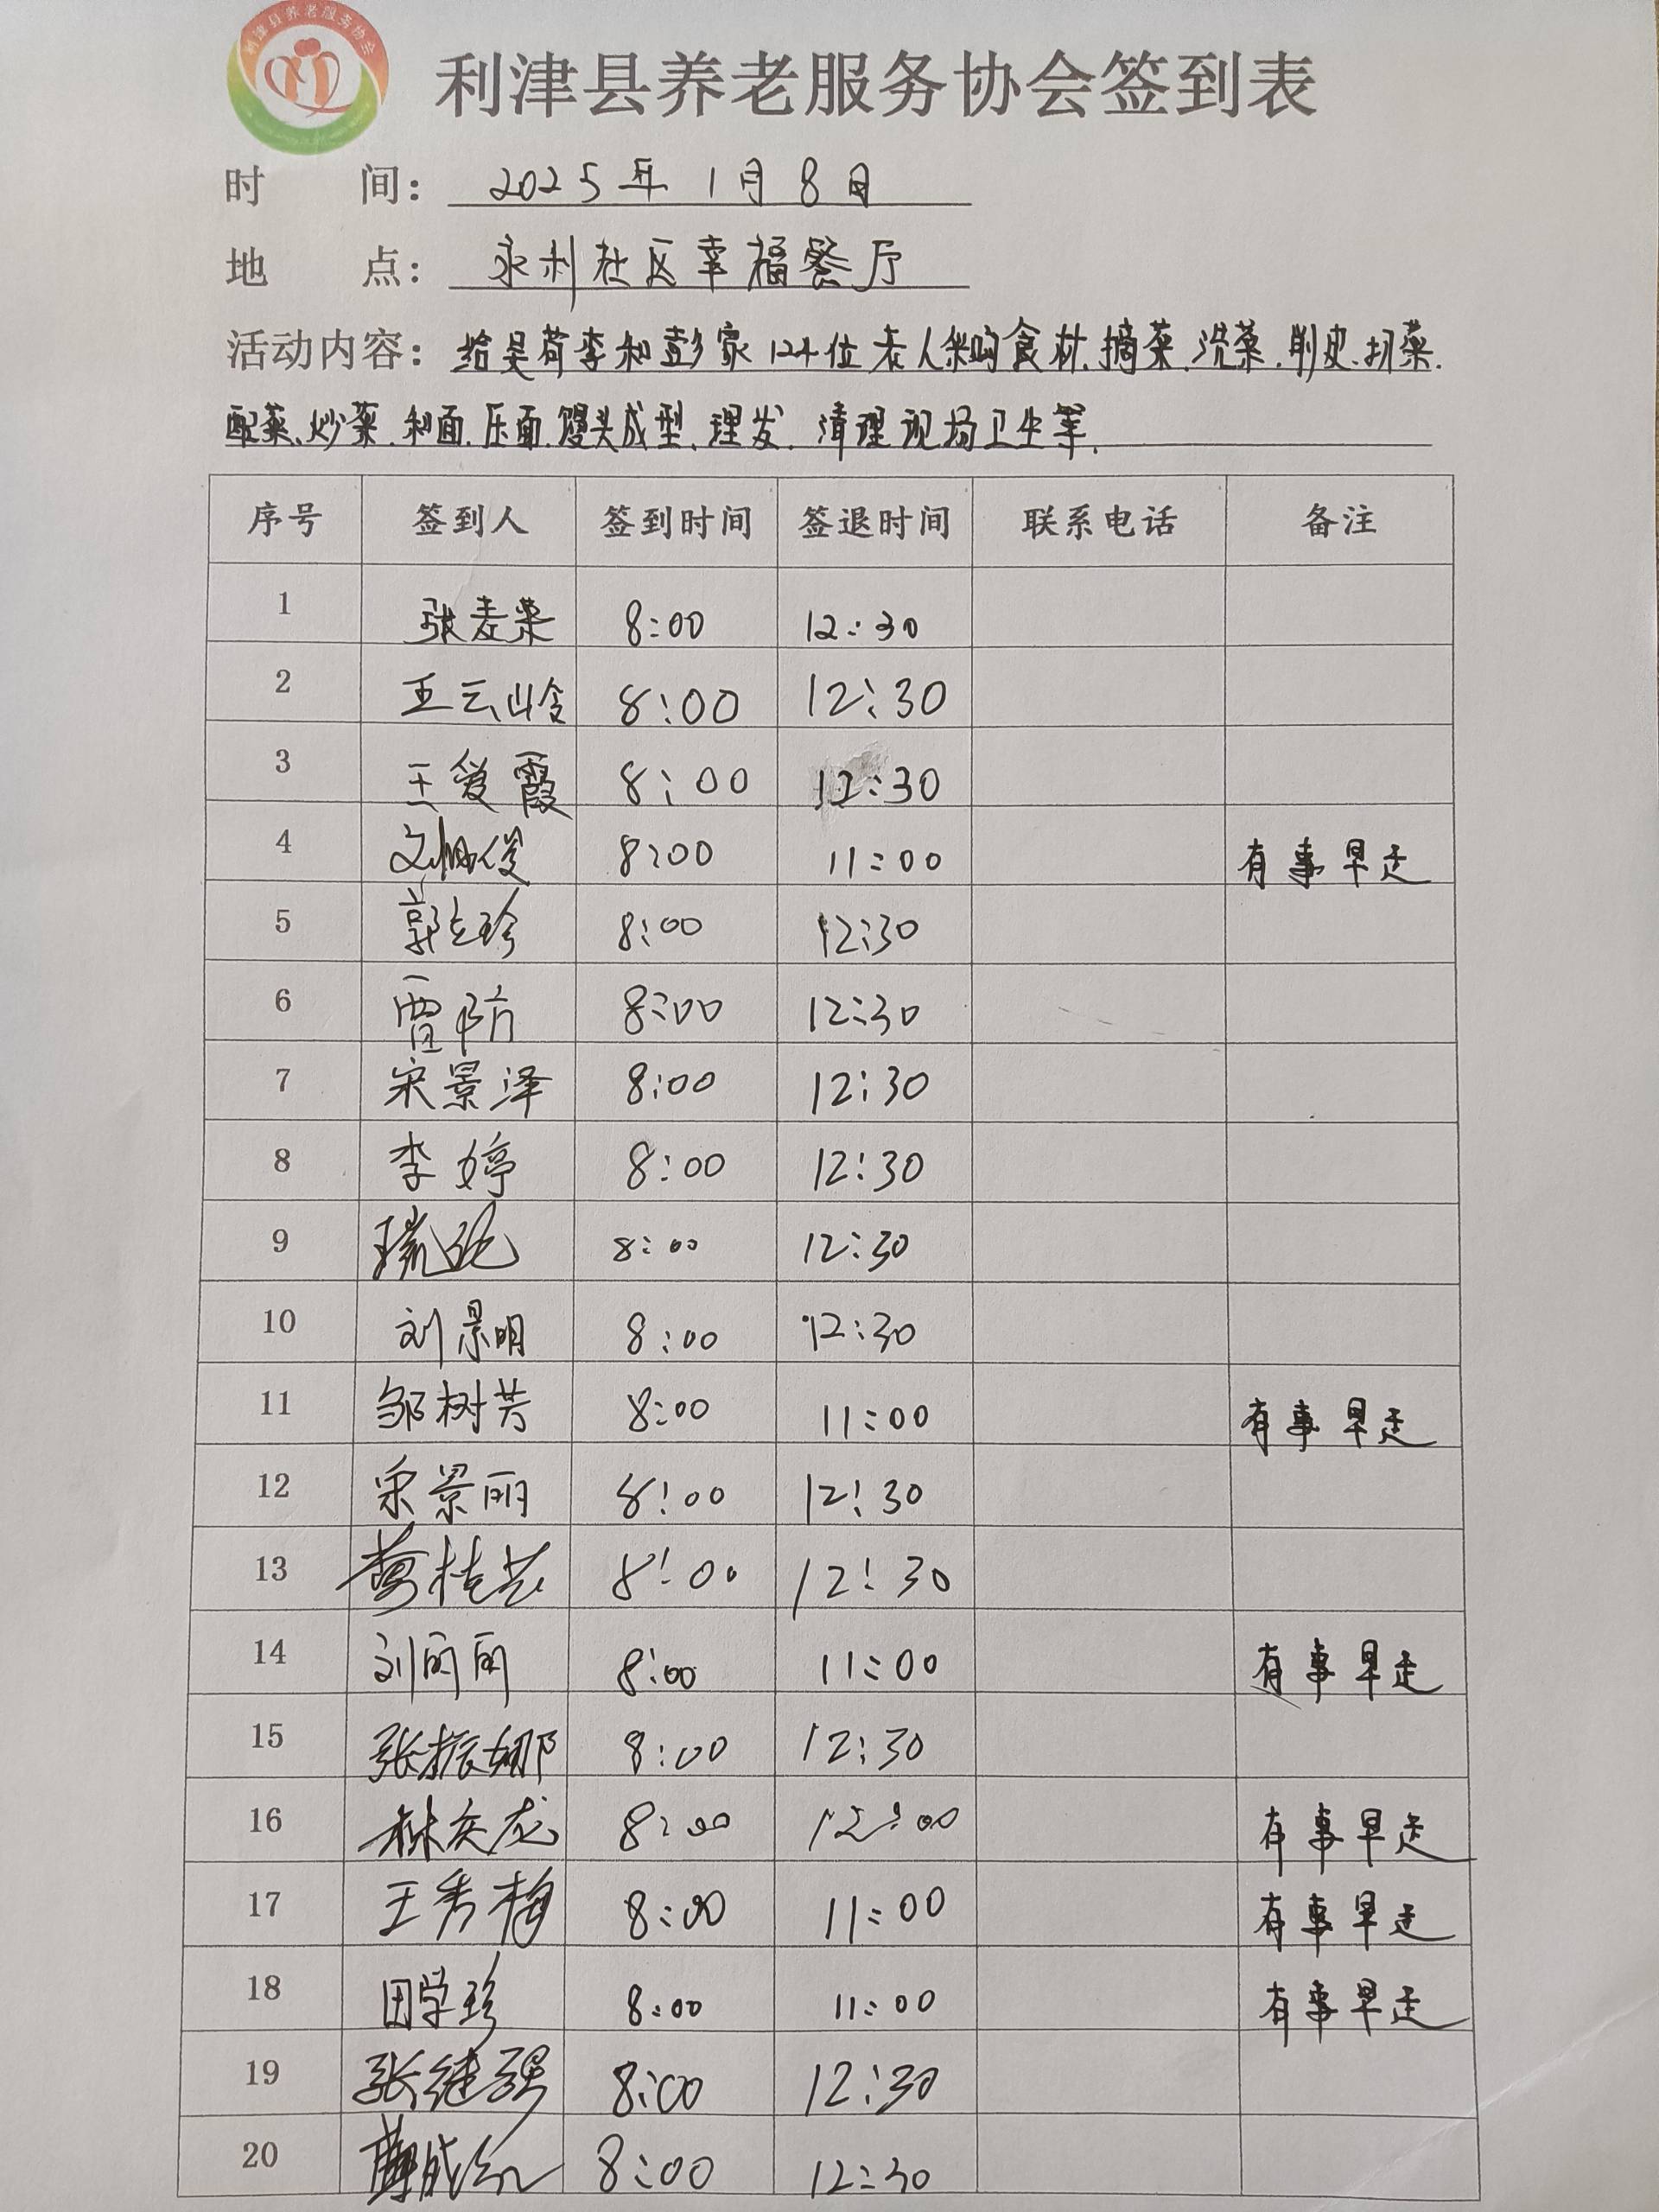 利津县养老服务协会
利津县养老服务协会签到表
时 间: 2025年1月8日
地 点: 永利社区幸福餐厅
活动内容: 给吴荷李和彭家124位老人采购食材.摘菜.洗菜.削皮.切菜.
配菜、炒菜.和面.压面.馒头成型.理发.清理现场卫生等.
序号 签到人 签到时间 签退时间 联系电话 备注
1 张麦荣 8:00 12:30
2 王云岭 8:00 12:30
3 王爱霞 8:00 12:30
4 8:00 11:00 有事早走
5 郭立珍 8:00 12:30
6 贾防 8:00 12:30
7 宋景泽 8:00 12:30
8 李婷 8:00 12:30
9 8:00 12:30
10 刘景明 8:00 12:30
11 邹树芳 8:00 11:00 有事早走
12 宋景丽 8:00 12:30
13 8:00 12:30
14 刘丽丽 8:00 11:00 有事早走
15 张振娜 8:00 12:30
16 8:00 12:00 有事早走
17 王秀梅 8:00 11:00 有事早走
18 田学珍 8:00 11:00 有事早走
19 张继强 8:00 12:30
20 8:00 12:30